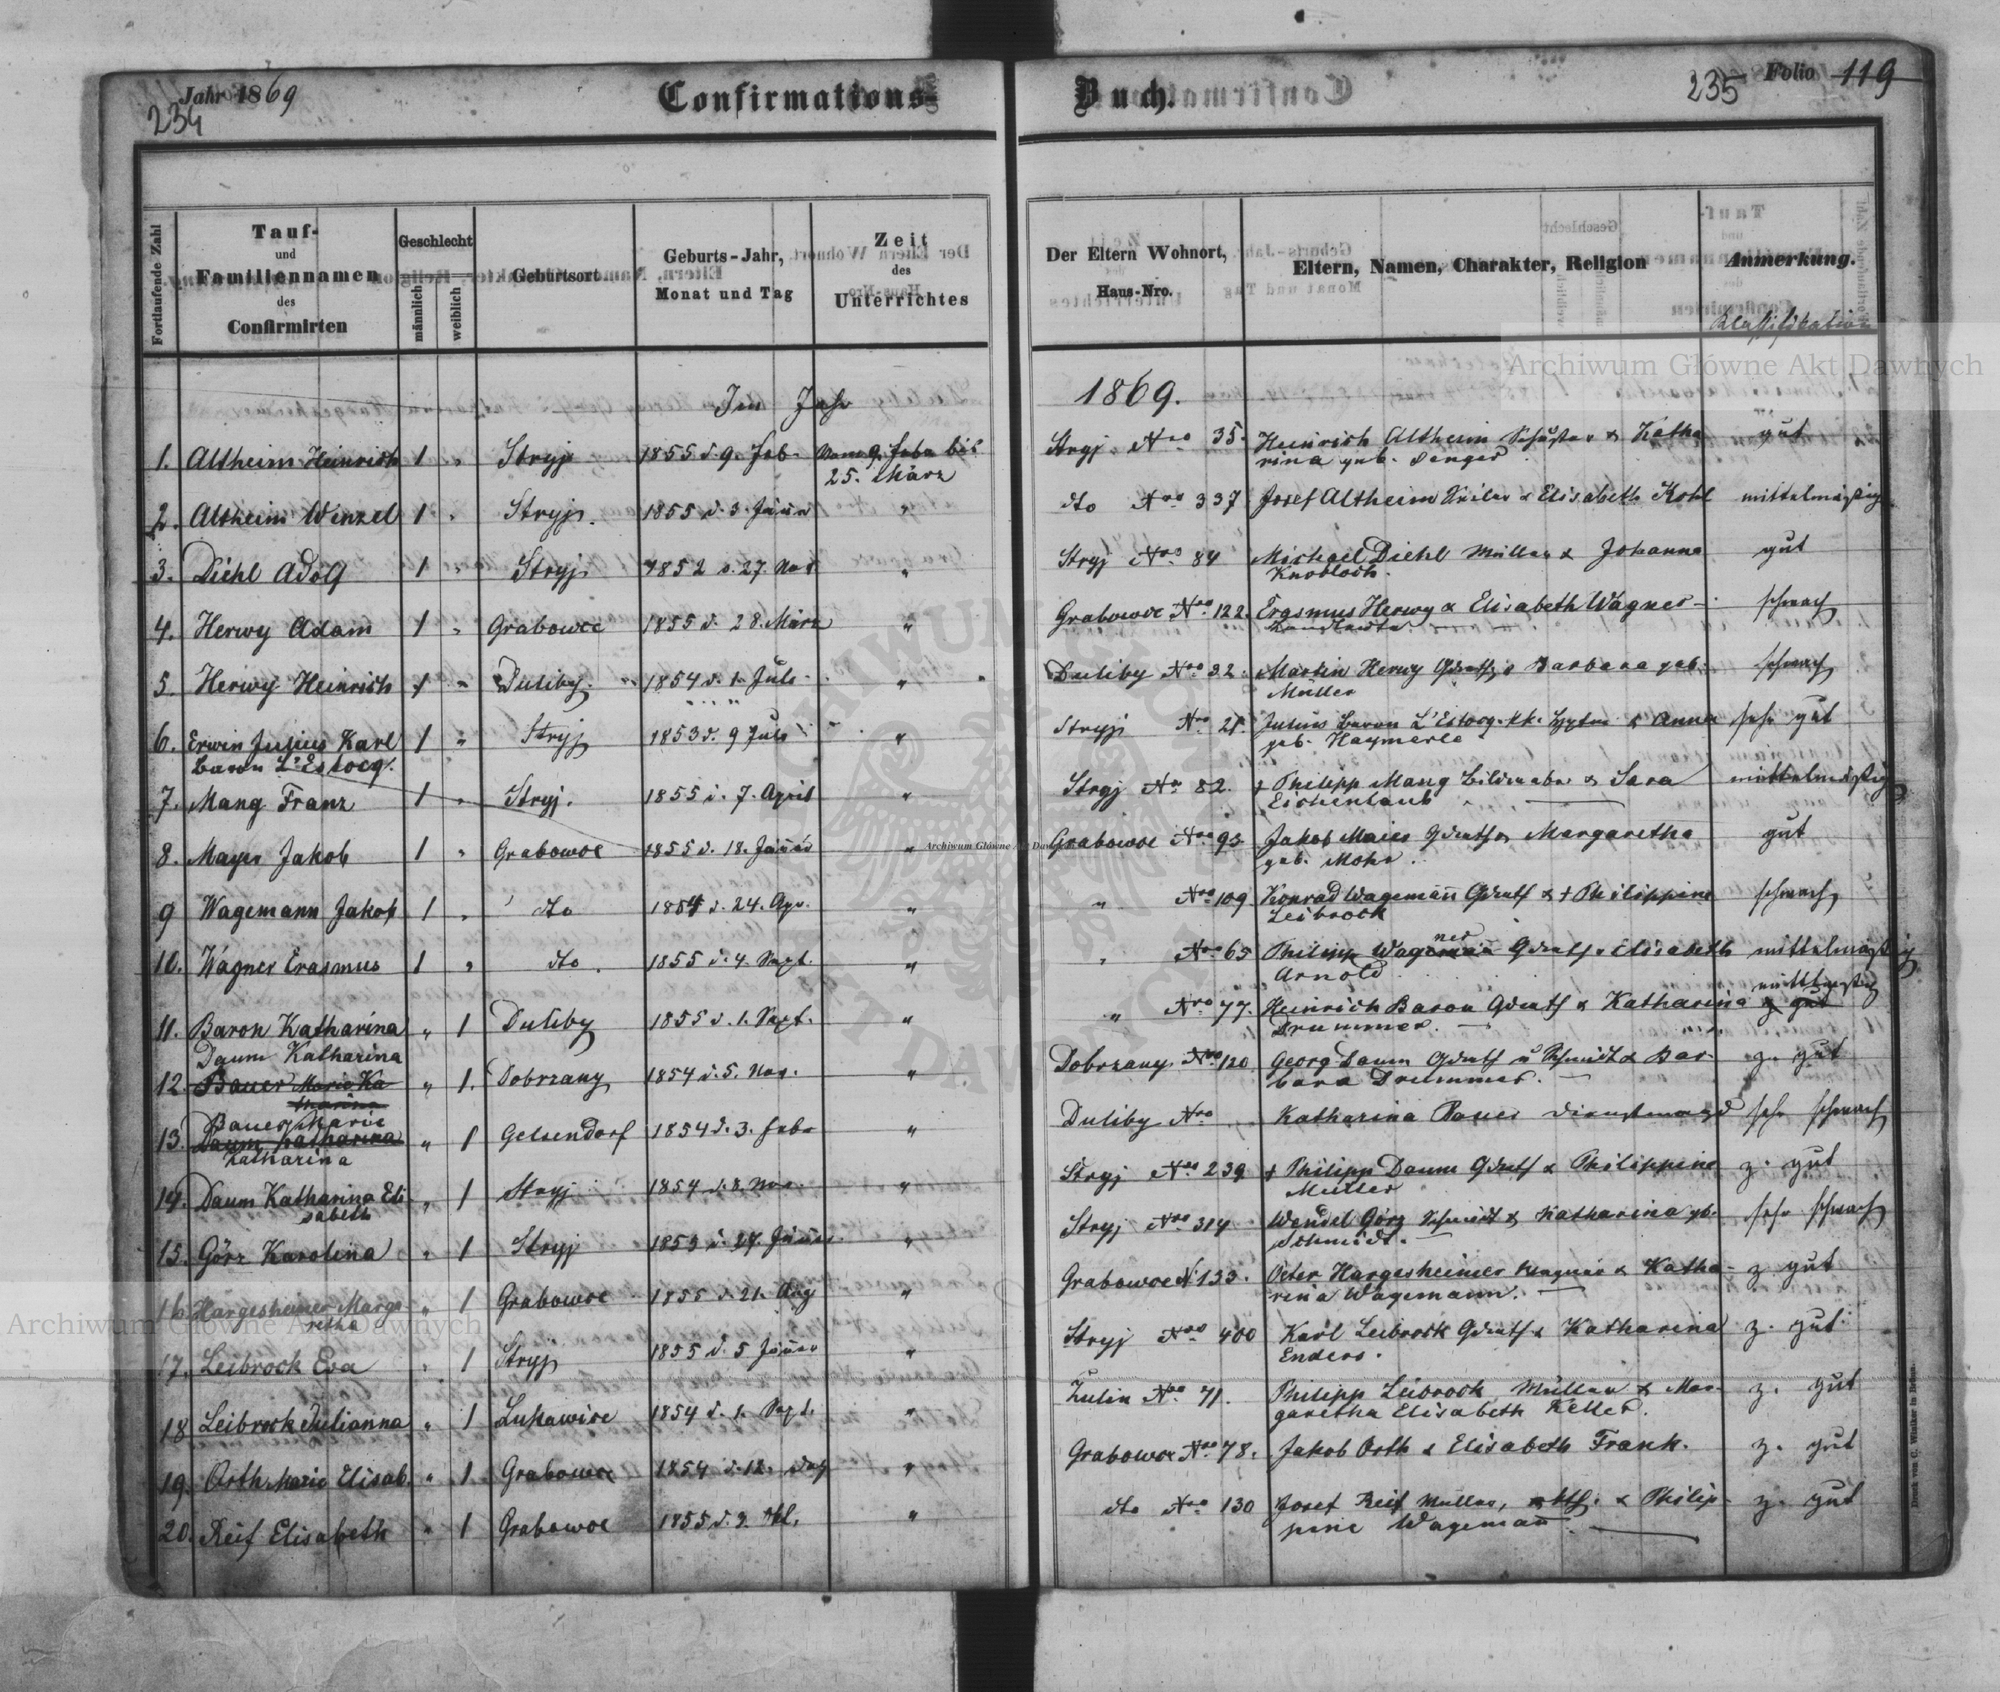 Jahr 1869
234
Confirmations-
Buch.
235
Folio 119
Fortlaufende Zahl
Tauf-
und
Familiennamen
des
Confirmirten
Geschlecht
männlich
weiblich
Geburtsort
Geburts-Jahr,
Monat und Tag
Zeit
des
Unterrichtes
Der Eltern Wohnort,
Haus-Nro.
Eltern, Namen, Charakter, Religion
Anmerkung.
Klassifikation
Im Jahr 1869.
1. Altheim Heinrich 1 " Stryj 1855 d. 9. Feb. Vom 9. Febr bis Stryj Nro 35. Heinrich Altheim Schuster & Katha gut
25. März rina geb. Senger
2. Altheim Wenzel 1 " Stryj. 1855 d. 3. Jänner " dto Nro 337 Josef Altheim & Elisabeth Kohl mittelmäßig
3. Diehl Adolf 1 " Stryj 1852 d. 27. Nov. " Stryj Nro 84 Michael Diehl Müller & Johanna gut
Knobloch.
4. Herwy Adam 1 " Grabowce 1855 d. 28. März " Grabowce Nro 122. Erasmus Herwy & Elisabeth Wagner schwach
5. Herwy Heinrich 1 " Duliby 1854 d. 1. Juli " Duliby Nro 32. Martin Herwy Gdrth & Barbara geb. schwach
Müller
6. Erwin Julius Karl 1 " Stryj 1853 d. 9 Juli " Stryj Nro 21. Julius Baron L'Estocq. kk. & Anna sehr gut
Baron L'Estocq. geb. Haymerle
7. Mang Franz 1 " Stryj. 1855 d. 7. April " Stryj Nro 82. † Philipp Mang & Sara mittelmäßig
Eichenlaub
8. Mayer Jakob 1 " Grabowce 1855 d. 18. Jänner " Grabowce Nro 93 Jakob Maier Gdrth & Margaretha gut
geb. Mohr.
9 Wagemann Jakob 1 " dto 1854 d. 24. Apr. " " Nro 109 Konrad Wagemann Gdrth & † Philippine schwach
Leibrock
10. Wagner Erasmus 1 " dto. 1855 d. 4. Sept. " " Nro 65 Philipp Wagner Gdrth & Elisabeth mittelmäßig
Arnold
11. Baron Katharina " 1 Duliby 1855 d. 1. Sept. " " Nro 77. Heinrich Baron Gdrth & Katharina mittelmäßig
Drummer. z gut
Daum Katharina
12. Bauer Marie Ka " 1. Dobrzany 1854 d. 5. Nov. " Dobrzany Nro 120 Georg Daum Gdrth u Schmidt & Bar- z. gut
tharina bara Drummer.
Bauer Marie
13. Daum Katharina " 1 Gelsendorf 1854 d. 3. Feb. " Duliby Nro Katharina Bauer Dienstmagd sehr schwach
Katharina
14. Daum Katharina Eli " 1 Stryj 1854 d. 8. Nov. " Stryj Nro 239 † Philipp Daum Gdrth & Philippine z. gut
sabeth Müller
15. Görz Karolina " 1 Stryj 1855 d. 27. Jänner " Stryj Nro 314 Wendel Görz Schmidt & Katharina gb. sehr schwach
Schmidt.
16. Hargesheimer Marga " 1 Grabowce 1855 d. 21. Aug " Grabowce N 133. Peter Hargesheimer Wagner & Katha- z gut
retha rina Wagemann.
17. Leibrock Eva " 1 Stryj 1855 d. 5 Jänner " Stryj Nro 400 Karl Leibrock Gdrth & Katharina z. gut
Enders.
18 Leibrock Julianna " 1 Lukawice 1854 d. 1. Sept. " Zulin Nro 71. Philipp Leibrock Müller & Mar- z. gut
garetha Elisabeth Keller.
19. Orth Marie Elisab. " 1. Grabowce 1854 d. 12. " Grabowce Nro 78. Jakob Orth & Elisabeth Frank. z. gut
20. Reif Elisabeth " 1 Grabowce 1855 d. 9. Okt. " dto Nro 130 Josef Reif Müller, & Philip- z. gut
pine Wagemann
Druck von C. Winiker in Brünn.
Archiwum Główne Akt Dawnych
Archiwum Główne Akt Dawnych
Archiwum Główne Akt Dawnych